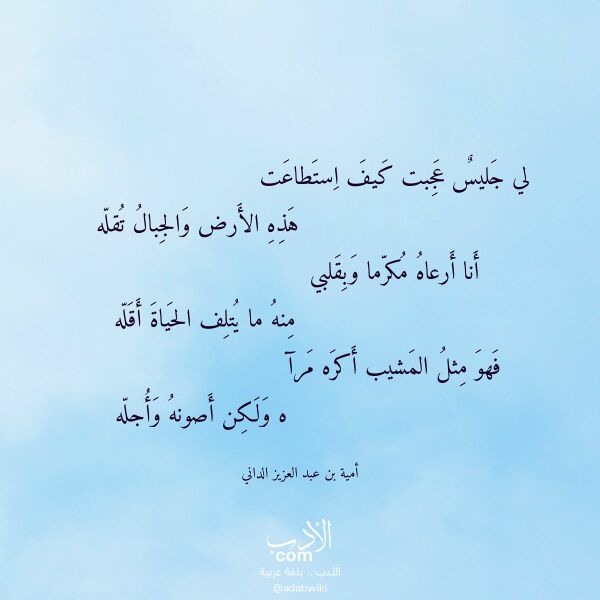 لي جَليسٌ عَجِبت كَيفَ اِستَطاعَت
هَذِهِ الأَرض وَالجِبالُ تُقلّه
أَنا أَرعاهُ مُكرّما وَبِقَلبي
مِنهُ ما يُتلِف الحَياةَ أَقَلّه
فَهوَ مِثلُ المَشيب أَكرَه مَرآ
ه وَلَكِن أَصونهُ وَأُجلّه
أمية بن عبد العزيز الداني
الأدب
com
الأدب .. بلغة عربية
@adabwiki